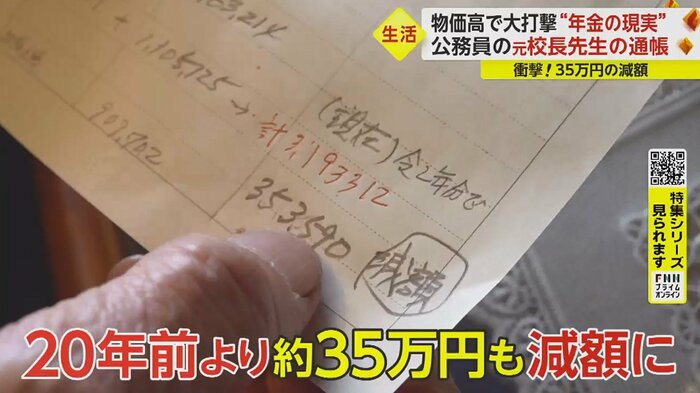 生活
物価高で大打撃“年金の現実”
公務員の元校長先生の通帳
衝撃！35万円の減額
特集シリーズ
見られます
FNN
プライム
オンライン
1,105,725 → 計3,193,312
903,702
(現在)令2年分で
353,590 減額
20年前より約35万円も減額に